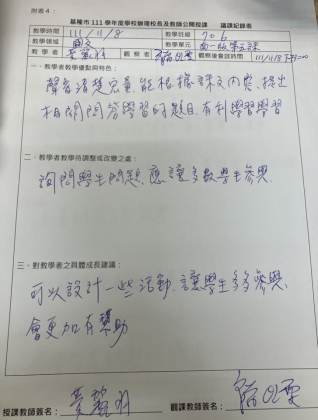 附表4：
基隆市 111 學年度學校辦理校長及教師公開授課 議課紀錄表
教學時間 111/11/8 教學班級 706
教學領域 國文 教學單元
教學者 觀察者 觀察後會談時間 111/11/8
一、教學者教學優點與特色：
聲音清楚宏量，能根據課文內容，提出
相關問答學習的題目，有利學習學習
二、教學者教學待調整或改變之處：
詢問學生問題，應讓多數學生參與
三、對教學者之具體成長建議：
可以設計一些活動，讓學生多多參與
會更加有幫助
授課教師簽名： 觀課教師簽名：